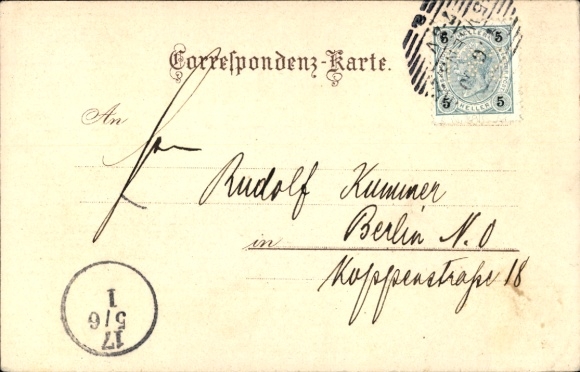 Correspondenz-Karte.
5 5
5 5
HELLER
An
Rudolf Kummer
in Berlin N.O
Koppenstraße 18
17
5/6
1